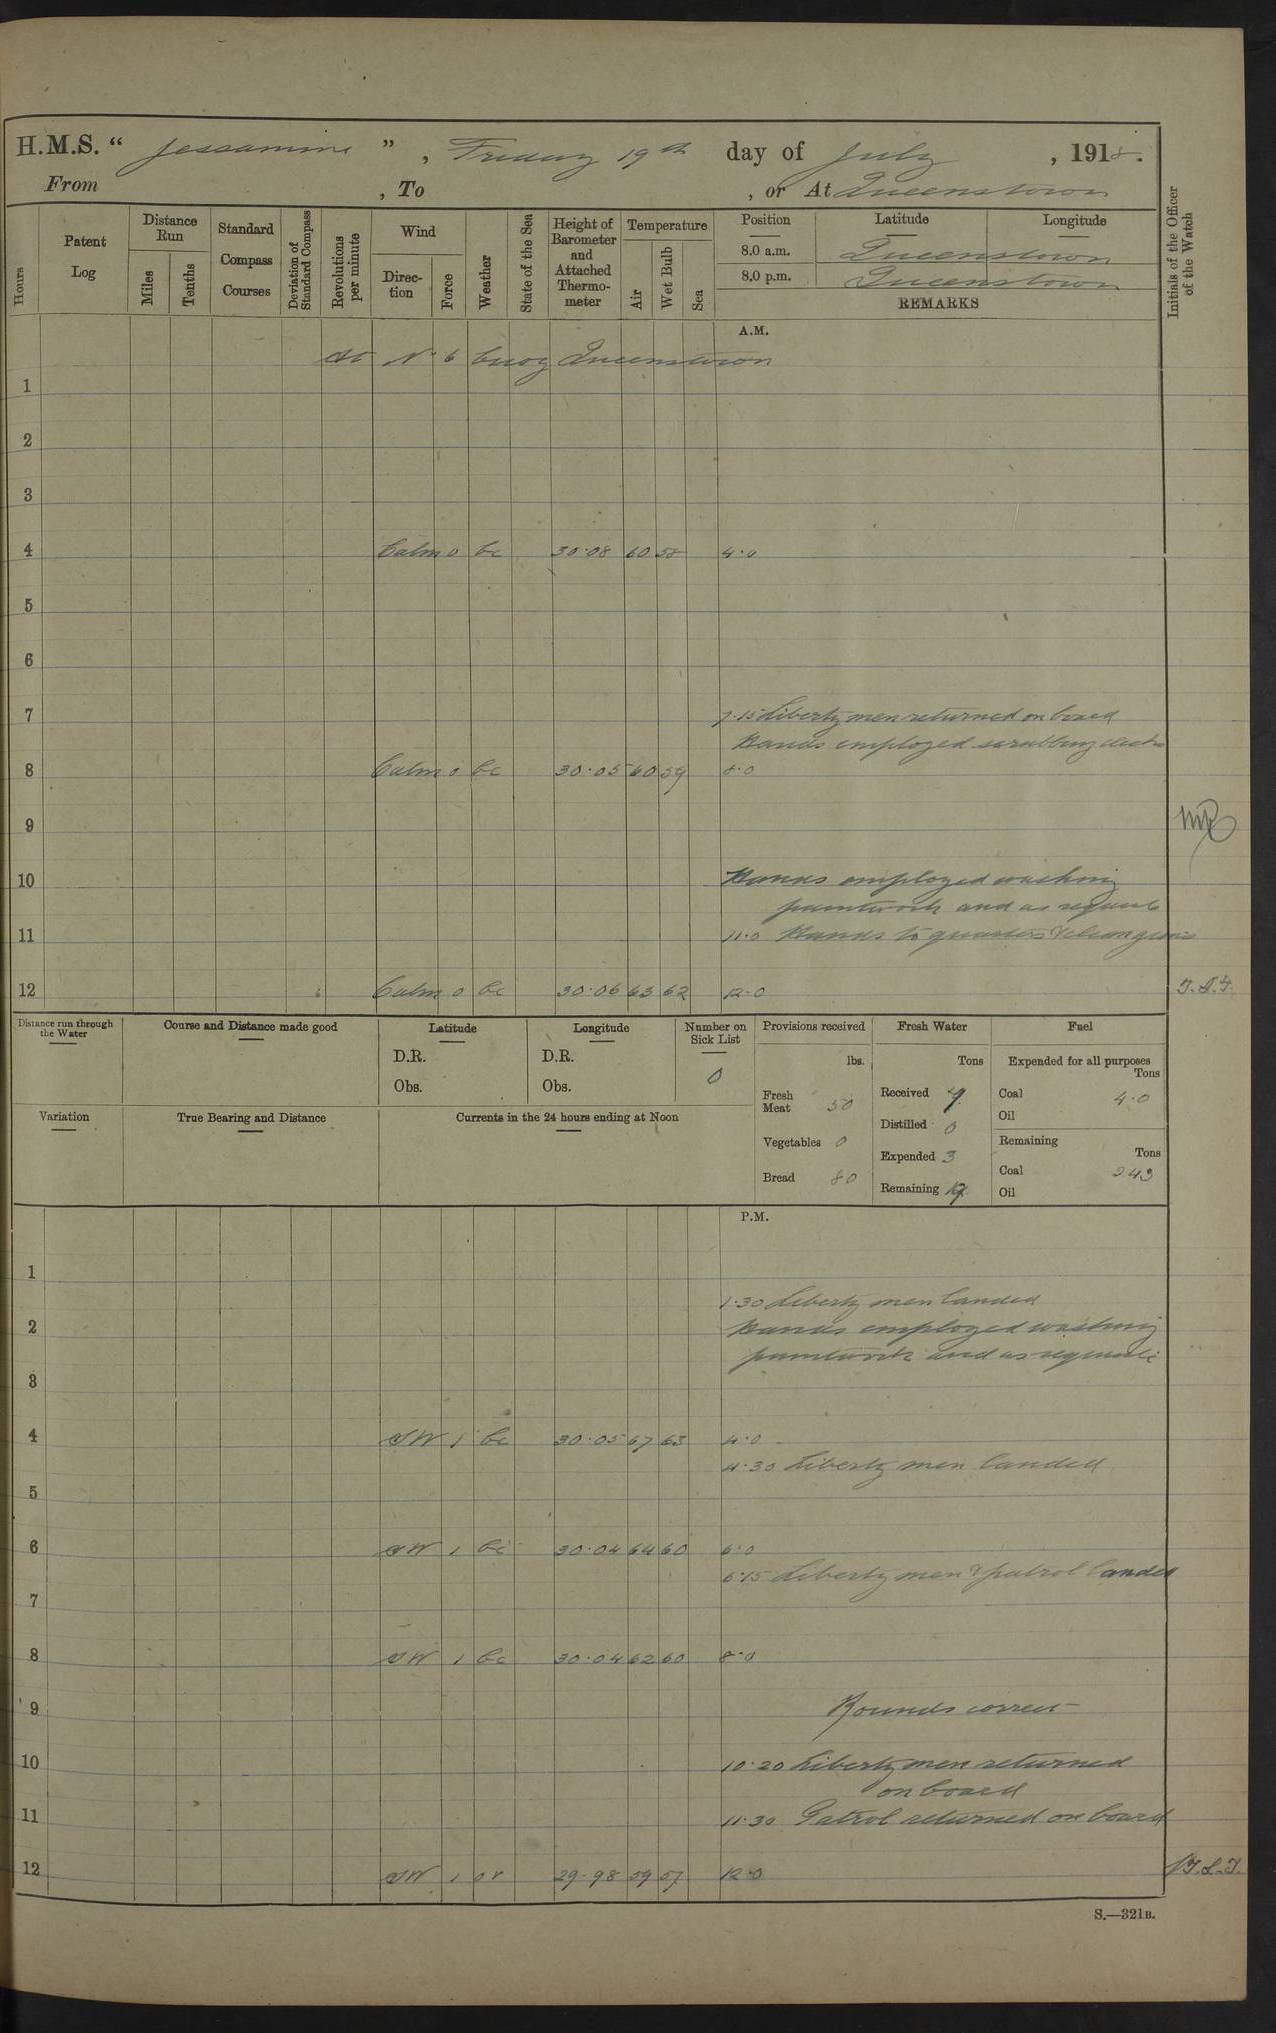 H.M.S. “ Jessamine ” , Friday 19th day of July , 1918.
From , To , or At Queenstown
Hours
Patent Log
Distance Run
Miles
Tenths
Standard Compass Courses
Deviation of Standard Compass
Revolutions per minute
Wind
Direc-tion
Force
Weather
State of the Sea
Height of Barometer and Attached Thermo-meter
Temperature
Air
Wet Bulb
Sea
Position Latitude Longitude
8.0 a.m. Queenstown
8.0 p.m. Queenstown
REMARKS
Initials of the Officer of the Watch
A.M.
At No 6 buoy Queenstown
1
2
3
4 Calm 0 bc 30.08 60 58 4.0
5
6
7 7.15 Liberty men returned on board
Hands employed scrubbing decks
8 Calm 0 bc 30.05 60 59 8.0
9
10 Hands employed washing
paintwork and as requisite
11 11.0 Hands to quarters & clean guns
12 Calm 0 bc 30.06 63 62 12.0
Distance run through the Water
Course and Distance made good
Latitude
D.R.
Obs.
Longitude
D.R.
Obs.
Number on Sick List
0
Variation
True Bearing and Distance
Currents in the 24 hours ending at Noon
Provisions received
lbs.
Fresh Meat 50
Vegetables 0
Bread 80
Fresh Water
Tons
Received
Distilled 0
Expended 3
Remaining
Fuel
Expended for all purposes
Tons
Coal 4.0
Oil
Remaining
Tons
Coal 243
Oil
P.M.
1
1.30 Liberty men landed
2 Hands employed washing
paintwork and as requisite
3
4 SW 1 bc 30.05 67 63 4.0
4.30 Liberty men landed
5
6 SW 1 bc 30.04 64 60 6.0
6.15 Liberty men & patrol landed
7
8 SW 1 bc 30.04 62 60 8.0
9 Rounds correct
10 10.20 Liberty men returned
on board
11 11.30 Patrol returned on board
12 SW 1 or 29.98 59 57 12.0
S.—321B.